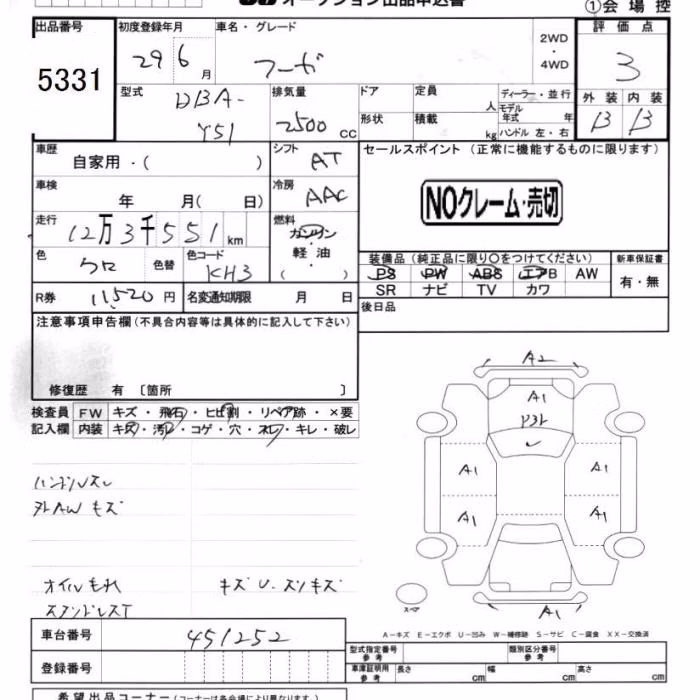 オークション出品申込書 ①会場控
出品番号 初度登録年月 車名・グレード 2WD・4WD 評価点
5331 29 6月 フーガ 3
型式 DBA-Y51 排気量 2500 CC ドア 定員 人 ディーラー・並行
形状 積載 kg モデル年式 年 ハンドル 左・右 外装 内装
B B
車歴 自家用・( ) シフト AT セールスポイント(正常に機能するものに限ります)
車検 年 月( 日) 冷房 AAC NOクレーム・売切
走行 12万3千551km 燃料 ガソリン・軽油・( )
色 クロ 色替 色コード KH3 装備品(純正品に限り○をつけてください) 新車保証書
PS PW ABS エアB AW 有・無
SR ナビ TV カワ
R券 11520円 名変通知期限 月 日 後日品
注意事項申告欄(不具合内容等は具体的に記入して下さい)
修復歴 有 〔箇所 〕
検査員 FW キズ・飛石・ヒビ割・リペア跡・×要
記入欄 内装 キズ・汚れ・コゲ・穴・ネレ・キレ・破レ
A2
A1
ハンドルスレ A1 A1
外AWキズ A1 A1
オイルもれ キズU.スリキズ
スペア A1
A-キズ E-エクボ U-凹み W-補修跡 S-サビ C-腐食 XX-交換済
車台番号 451252 型式指定番号 参考 類別区分番号 参考
登録番号 車庫証明用 参考 長さ cm 幅 cm 高さ cm
希望出品コーナー(コーナーは各会場により異なります。)